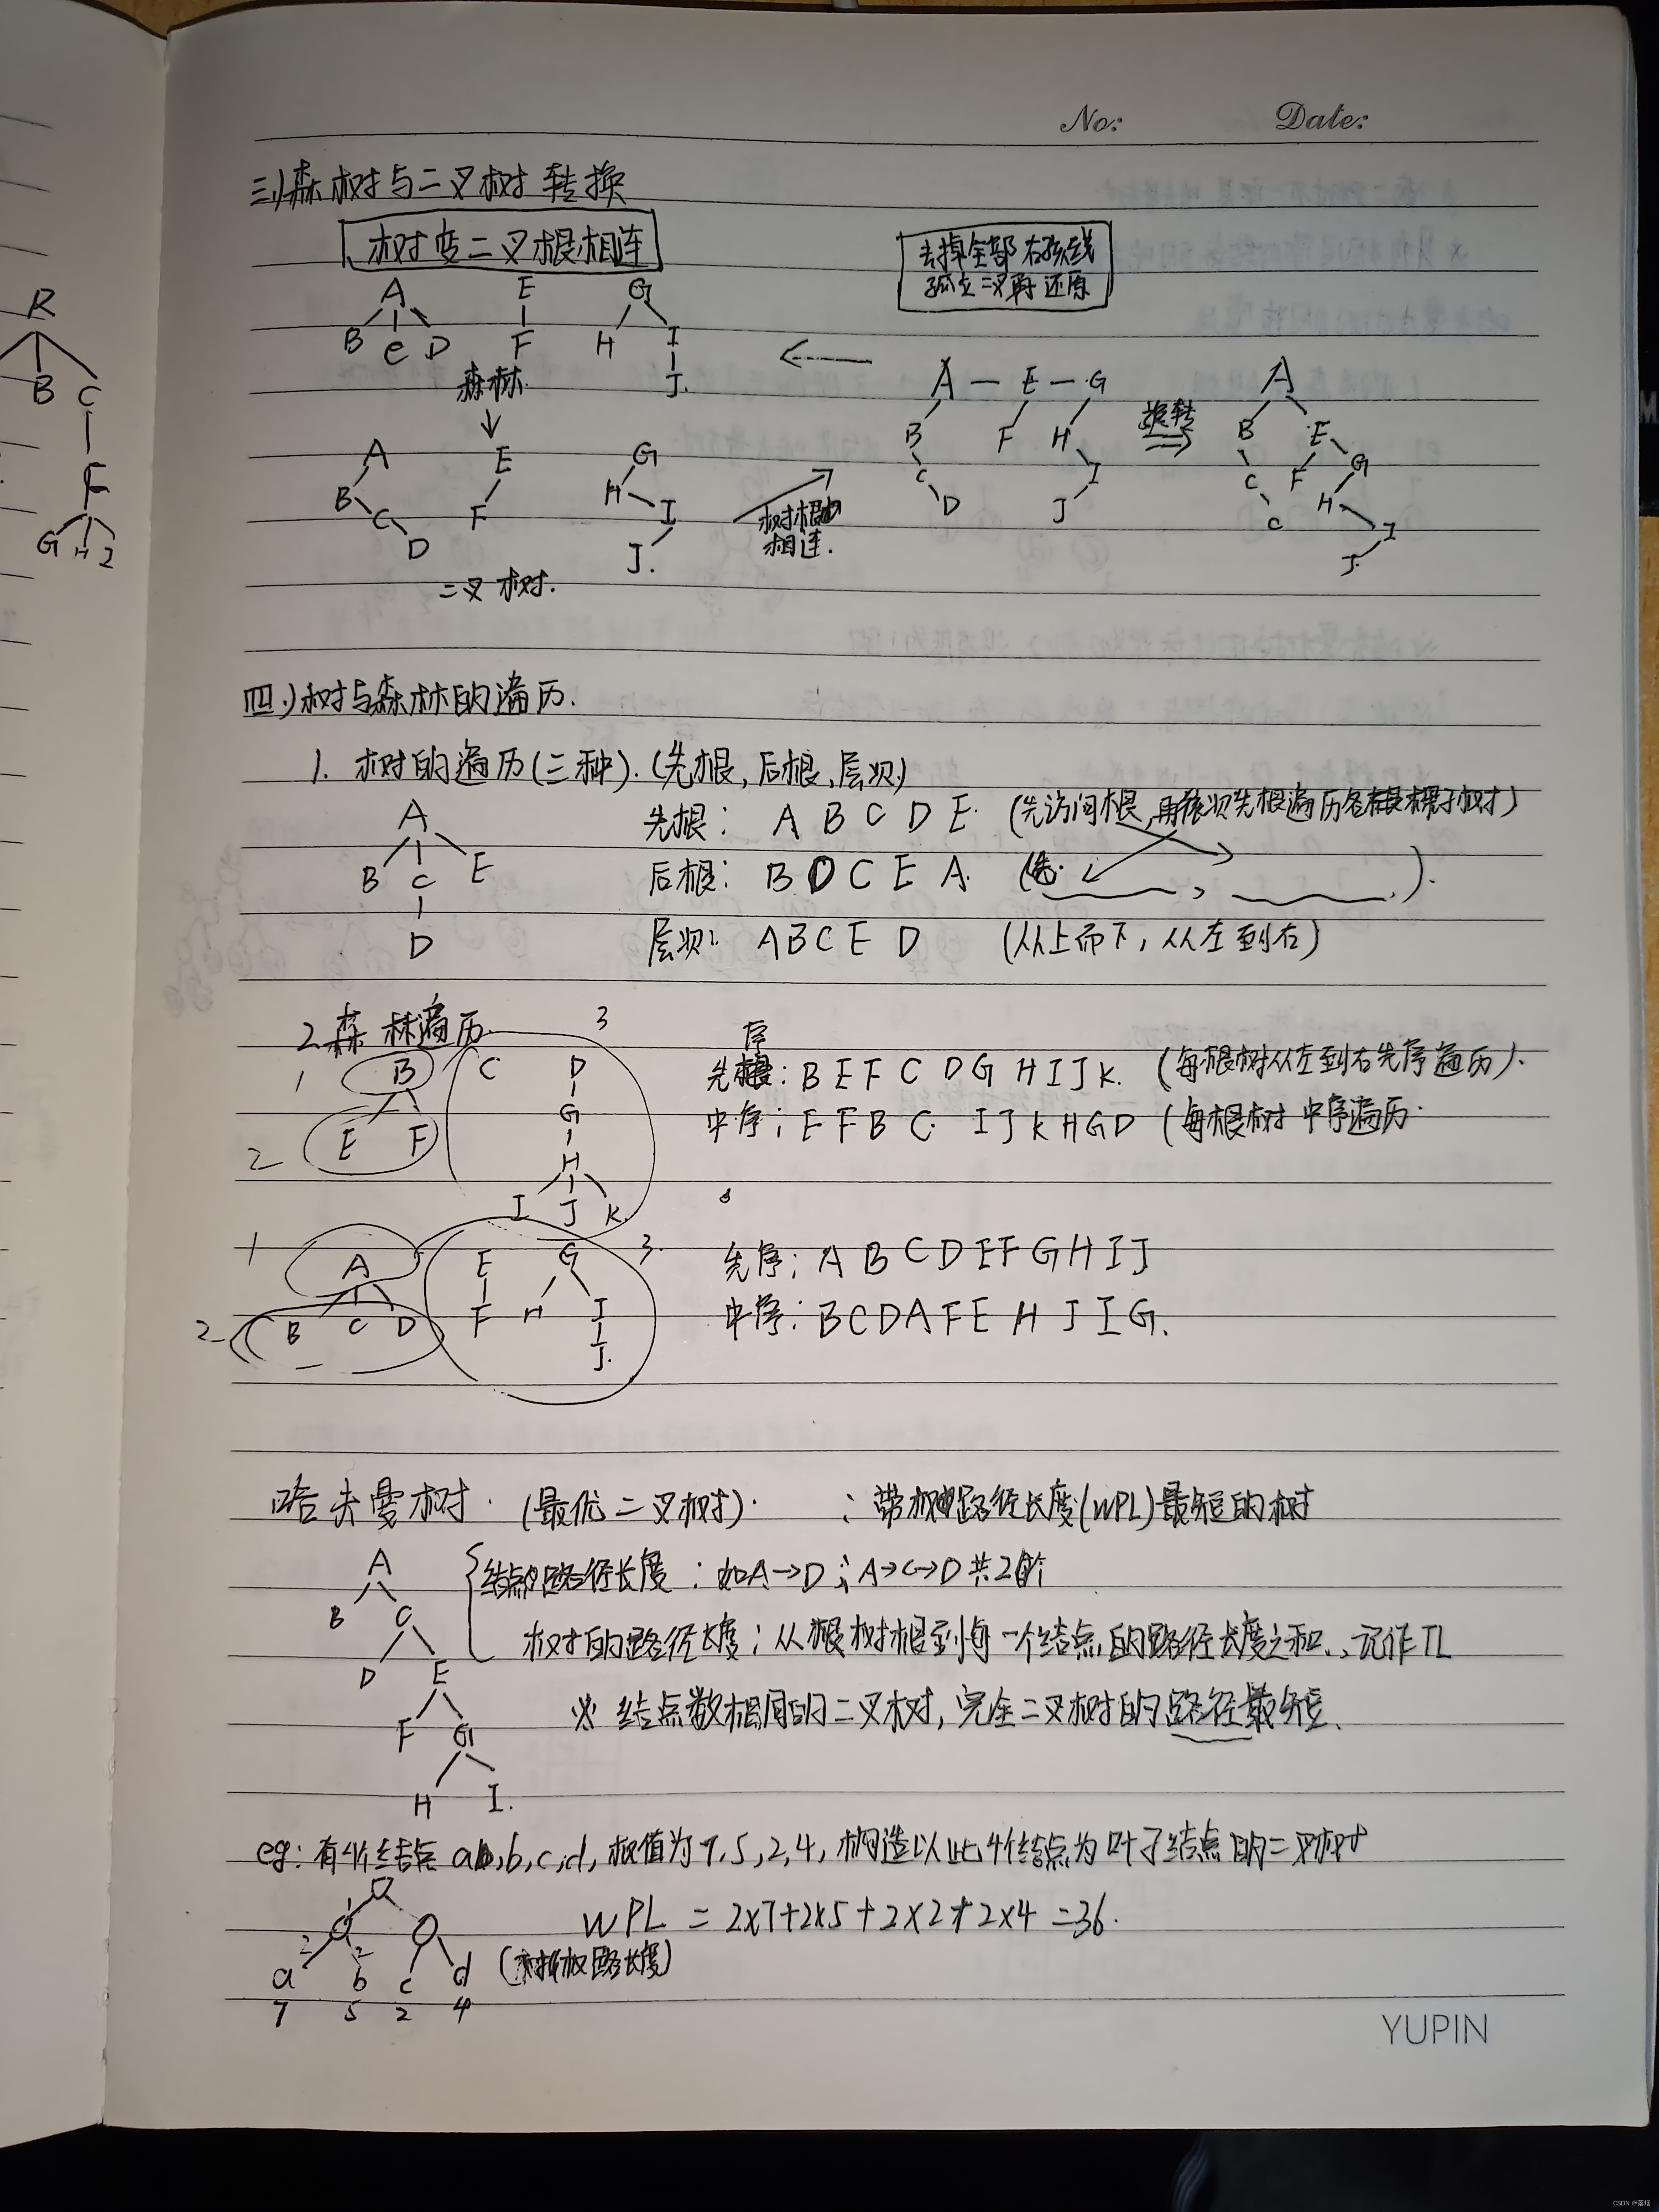 No: Date:
三)森树与二叉树转换
树变二叉根相连
去掉全部右孩线
孤立二叉再还原
A E G
B C D F H I
J
森林
A — E — G
B F H
C I
D J
旋转
A
B E
C F G
C H I
J
A E G
B F H
C I
D J.
二叉树.
树根
相连.
R
B C
F
G H I
四.)树与森林的遍历.
1. 树的遍历(三种).(先根,后根,层次)
A
B C E
D
先根: A B C D E. (先访问根,再依次先根遍历各棵子树)
后根: B D C E A. (先. , .).
层次: A B C E D (从上而下,从左到右)
2.森林遍历
3
1 B C D
G
2 E F H
I J K
序
先: B E F C D G H I J K. (每根树从左到右先序遍历).
中序: E F B C. I J K H G D (每根树中序遍历.
1 A E G 3.
2 B C D F H I
J.
先序: A B C D E F G H I J
中序: B C D A F E H J I G.
哈夫曼树. (最优二叉树). : 带权路径长度(WPL)最短的树
A
B C
D E
F G
H I.
结点路径长度: 如A→D ; A→C→D 共2个
树的路径长度: 从树根到每一个结点的路径长度之和.,记作TL
※ 结点数相同的二叉树,完全二叉树的路径最短.
eg: 有4个结点 a,b,c,d, 权值为7,5,2,4, 构造以此4个结点为叶子结点的二叉树
WPL = 2×7+2×5+2×2+2×4=36.
1
2 2
a b c d
7 5 2 4
YUPIN
CSDN @落烟